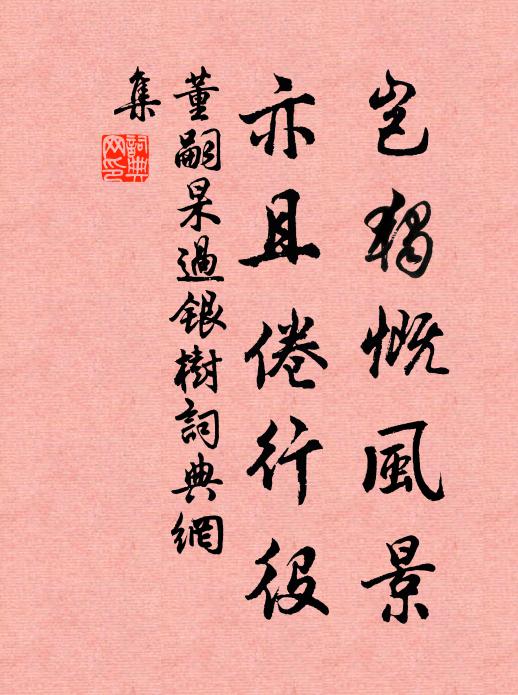 岂獨慨風景
亦且倦行役
董嗣杲過銀樹詞典網
集
詞典網印